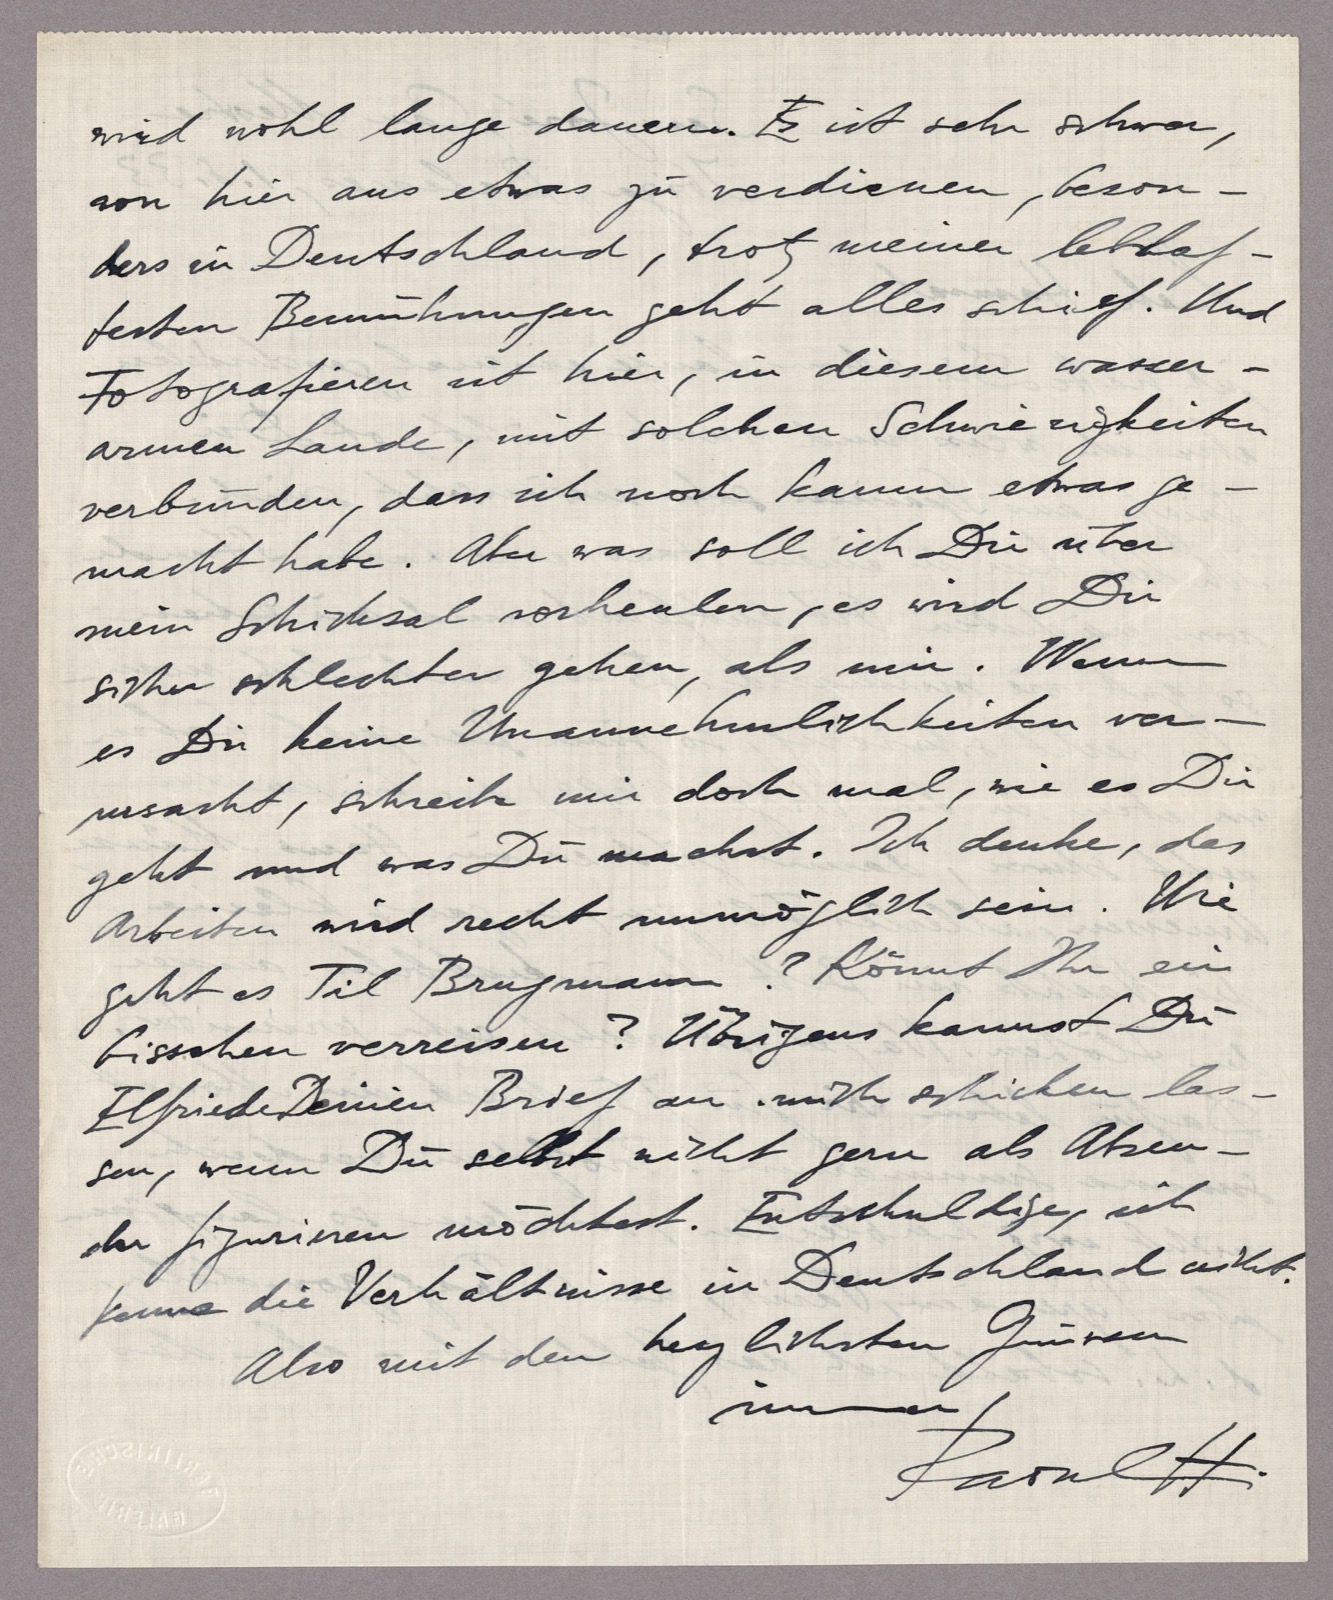 wird wohl lange dauern. Es ist sehr schwer,
von hier aus etwas zu verdienen, beson-
ders in Deutschland, trotz meiner lebhaf-
testen Bemühungen geht alles schief. Und
Fotografieren ist hier, in diesem wasser-
armen Lande, mit solchen Schwierigkeiten
verbunden, dass ich noch kaum etwas ge-
macht habe. Aber was soll ich Dir über
mein Schicksal vorheulen, es wird Dir
sicher schlechter gehen, als mir. Wenn
es Dir keine Unannehmlichkeiten ver-
ursacht, schreibe mir doch mal, wie es Dir
geht und was Du machst. Ich denke, das
Arbeiten wird recht unmöglich sein. Wie
geht es Til Brugmann? Könnt Ihr ein
bisschen verreisen? Übrigens kannst Du
Elfriede Deinen Brief an mich schicken las-
sen, wenn Du selbst nicht gern als Absen-
der figurieren möchtest. Entschuldige, ich
kenne die Verhältnisse in Deutschland nicht.
Also mit den herzlichsten Grüssen
immer,
Raoul H.
BERLINISCHE
GALERIE